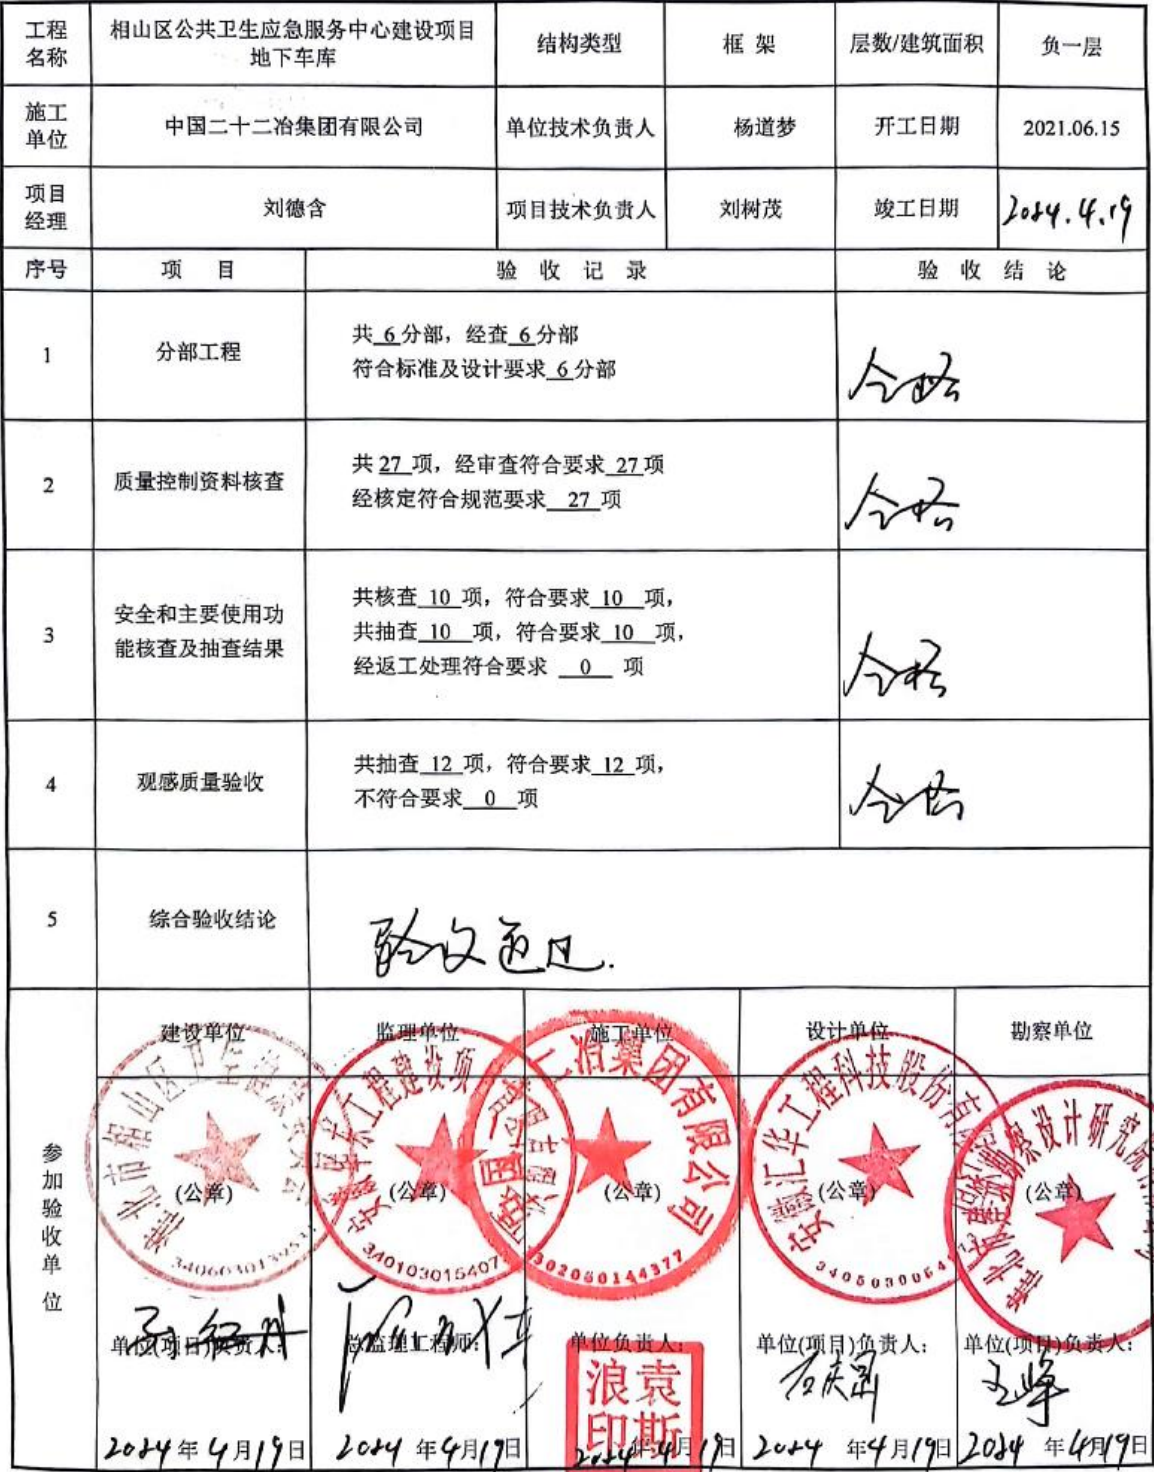 工程名称 相山区公共卫生应急服务中心建设项目地下车库 结构类型 框 架 层数/建筑面积 负一层
施工单位 中国二十二冶集团有限公司 单位技术负责人 杨道梦 开工日期 2021.06.15
项目经理 刘德含 项目技术负责人 刘树茂 竣工日期 2024.4.19
序号 项 目 验 收 记 录 验 收 结 论
1 分部工程 共 6 分部，经查 6 分部
符合标准及设计要求 6 分部
合格
2 质量控制资料核查 共 27 项，经审查符合要求 27 项
经核定符合规范要求 27 项
合格
3 安全和主要使用功能核查及抽查结果 共核查 10 项，符合要求 10 项，
共抽查 10 项，符合要求 10 项，
经返工处理符合要求 0 项
合格
4 观感质量验收 共抽查 12 项，符合要求 12 项，
不符合要求 0 项
合格
5 综合验收结论 验收通过.
参加验收单位
建设单位 监理单位 施工单位 设计单位 勘察单位
(公章) (公章) (公章) (公章) (公章)
单位(项目)负责人： 总监理工程师： 单位负责人： 单位(项目)负责人： 单位(项目)负责人：
袁斯浪印
王峰
2024 年 4 月 19 日 2024 年 4 月 19 日 2024 年 4 月 19 日 2024 年 4 月 19 日 2024 年 4 月 19 日